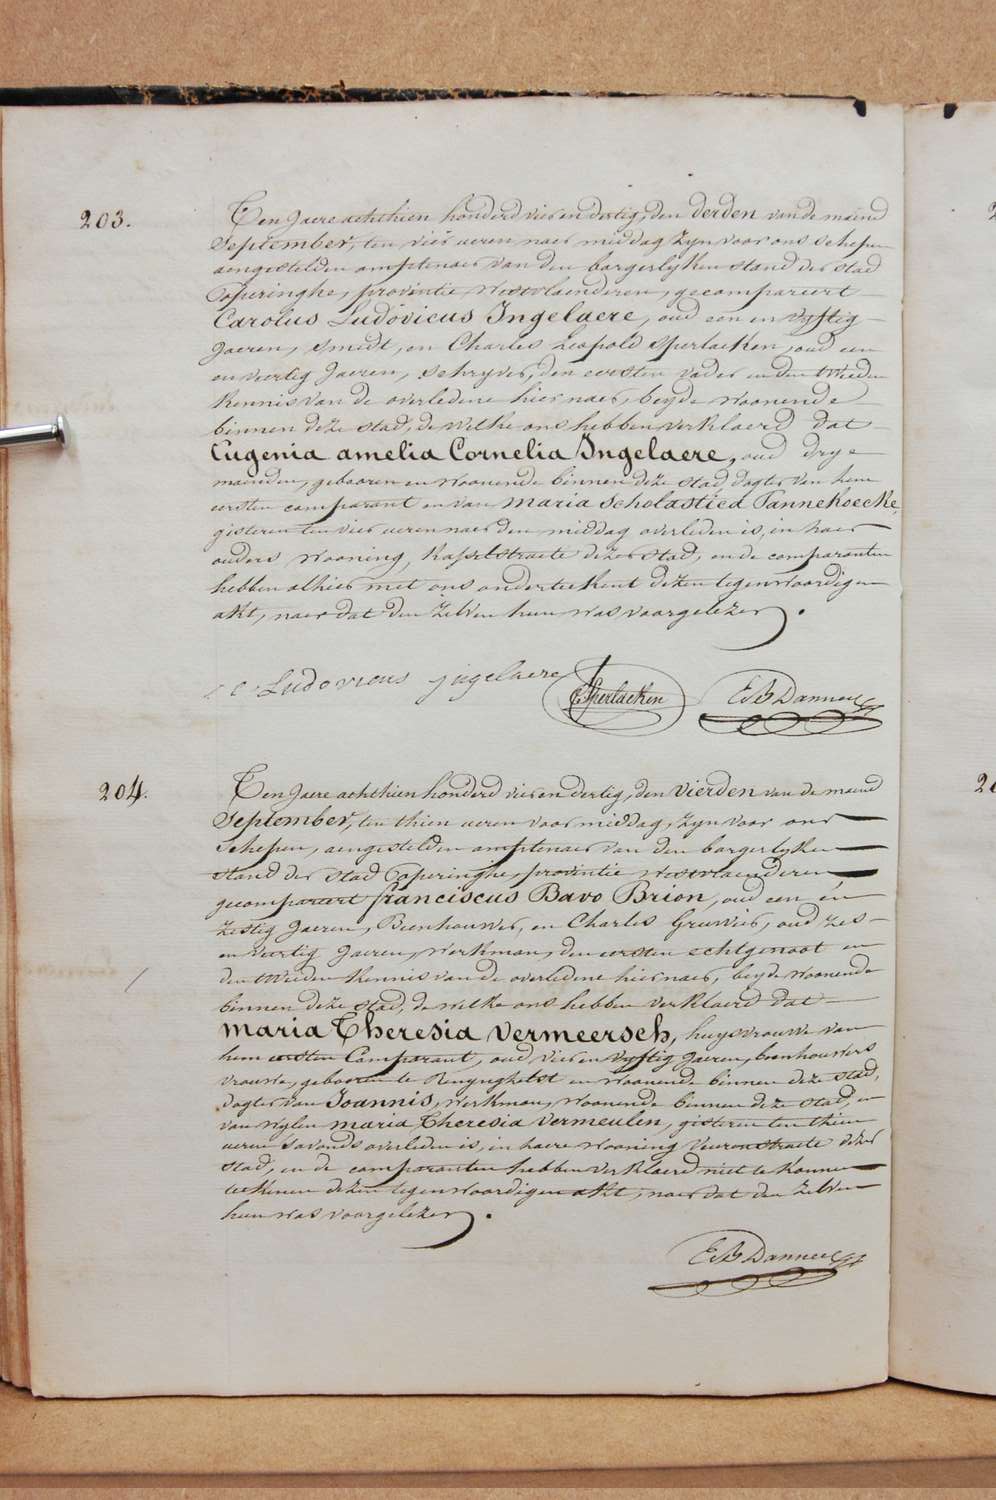 203.
Ten Jaere achthien honderd vier en dertig, den derden van de maend
September, ten vier ueren naer middag zyn voor ons schepen
aengestelden amptenaer van den borgerlyken stand der stad
Poperinghe, provintie Westvlaenderen, gecompareert
Carolus Ludovicus Ingelaere, oud een en vyftig
Jaeren, smidt, en Charles Leopold Sperlaeken, oud een
en veertig Jaeren, schryver, den eersten vader en den tweeden
kennis van de overledene hier naer, beyde woonende
binnen deze stad, de welke ons hebben verklaerd dat
Eugenia amelia Cornelia Ingelaere, oud drye
maenden, gebooren en woonende binnen deze stad, dogter van hem
eersten comparant en van maria scholastica Pannekoecke,
gisteren ten vier ueren naer den middag overleden is, in haer
ouders wooning, Kasselstraete dezer stad, en de comparanten
hebben alhier met ons onderteekent dezen tegenwoordigen
akt, naer dat den zelven hun was voorgelezen.
C Ludovicus jngelaere C. Sperlaeken E B Danneel
204.
Ten Jaere achthien honderd vier en dertig, den vierden van de maend
September, ten thien ueren voor middag, zyn voor ons
schepen, aengestelden amptenaer van den borgerlyken
stand der stad Poperinghe, provintie westvlaenderen,
gecompareert franciscus Bavo Brion, oud een en
zestig Jaeren, Beenhouwer, en Charles Gruwier, oud zes
en veertig Jaeren, werkman, den eersten echtgenoot en
den tweeden kennis van de overledene hier naer, beyde woonende
binnen deze stad, de welke ons hebben verklaerd dat
maria Theresia vermeersch, huysvrouwe van
hem eersten Comparant, oud vier en vyftig Jaeren, beenhouwers
vrouwe, gebooren te Renynghelst en woonende binnen deze stad,
dogter van Joannis, werkman, woonende binnen deze stad, en
van wylen maria Theresia vermeulen, gisteren ten thien
ueren s'avonds overleden is, in haere wooning veurnstraete dezer
stad, en de comparanten hebben verklaerd niet te konnen
teekenen dezen tegenwoordigen akt, naer dat den zelven
hun was voorgelezen.
E B Danneel